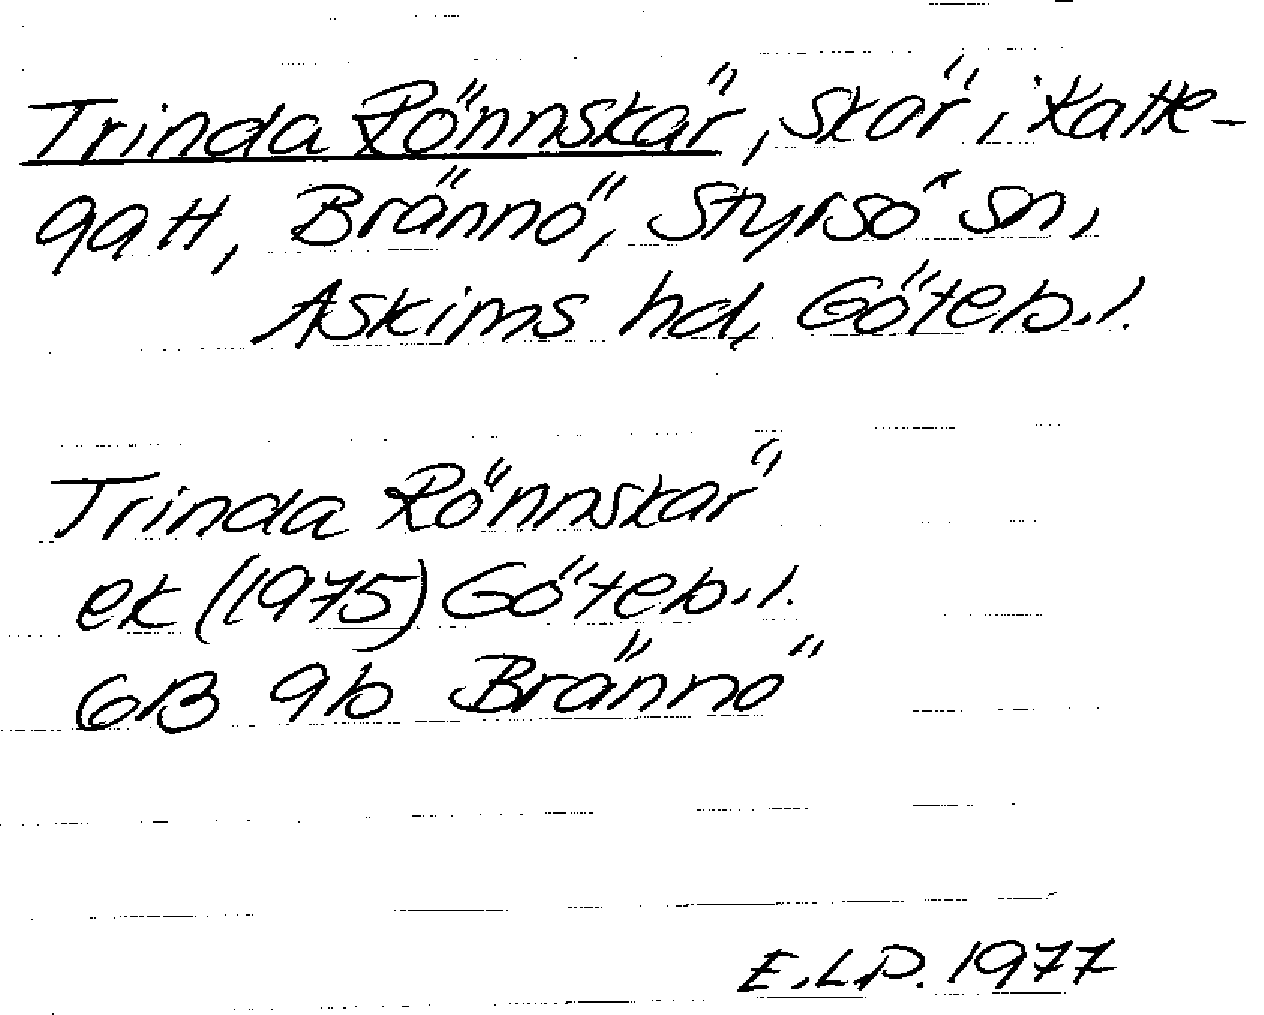 Trinda Rönnskär, skär i Katte-
gatt, Brännö, Styrsö sn,
Askims hd, Göteb. l.
Trinda Rönnskär
ek (1975) Göteb. l.
6B 9b Brännö
E.L.P. 1977